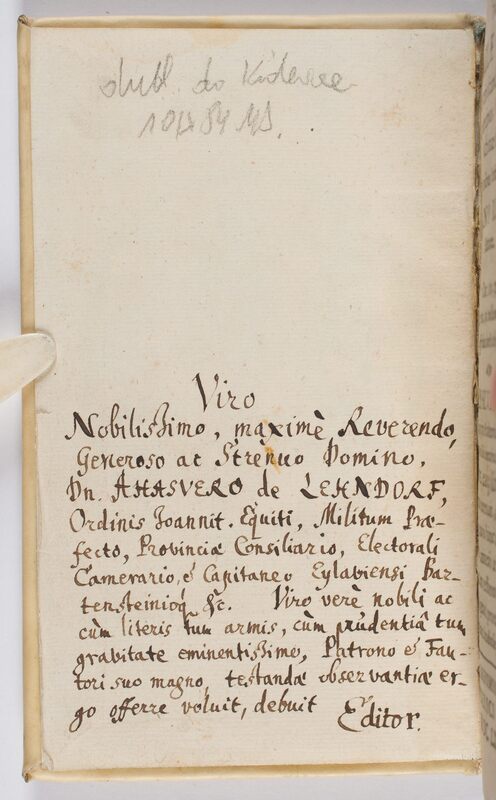 dubl. do
Viro
Nobilissimo, maximè Reverendo,
Generoso ac Strenuo Domino,
Dn. AHASVERO de LEHNDORF,
Ordinis Joannit. Equiti, Militum Præ-
fecto, Provinciæ Consiliario, Electorali
Camerario, & Capitaneo Eylaviensi Bar-
tensteinioq; &c. Viro verè nobili ac
cùm literis tum armis, cùm prudentiâ tum
gravitate eminentissimo, Patrono & Fau-
tori suo magno, testandæ observantiæ er-
go offerre voluit, debuit Editor.